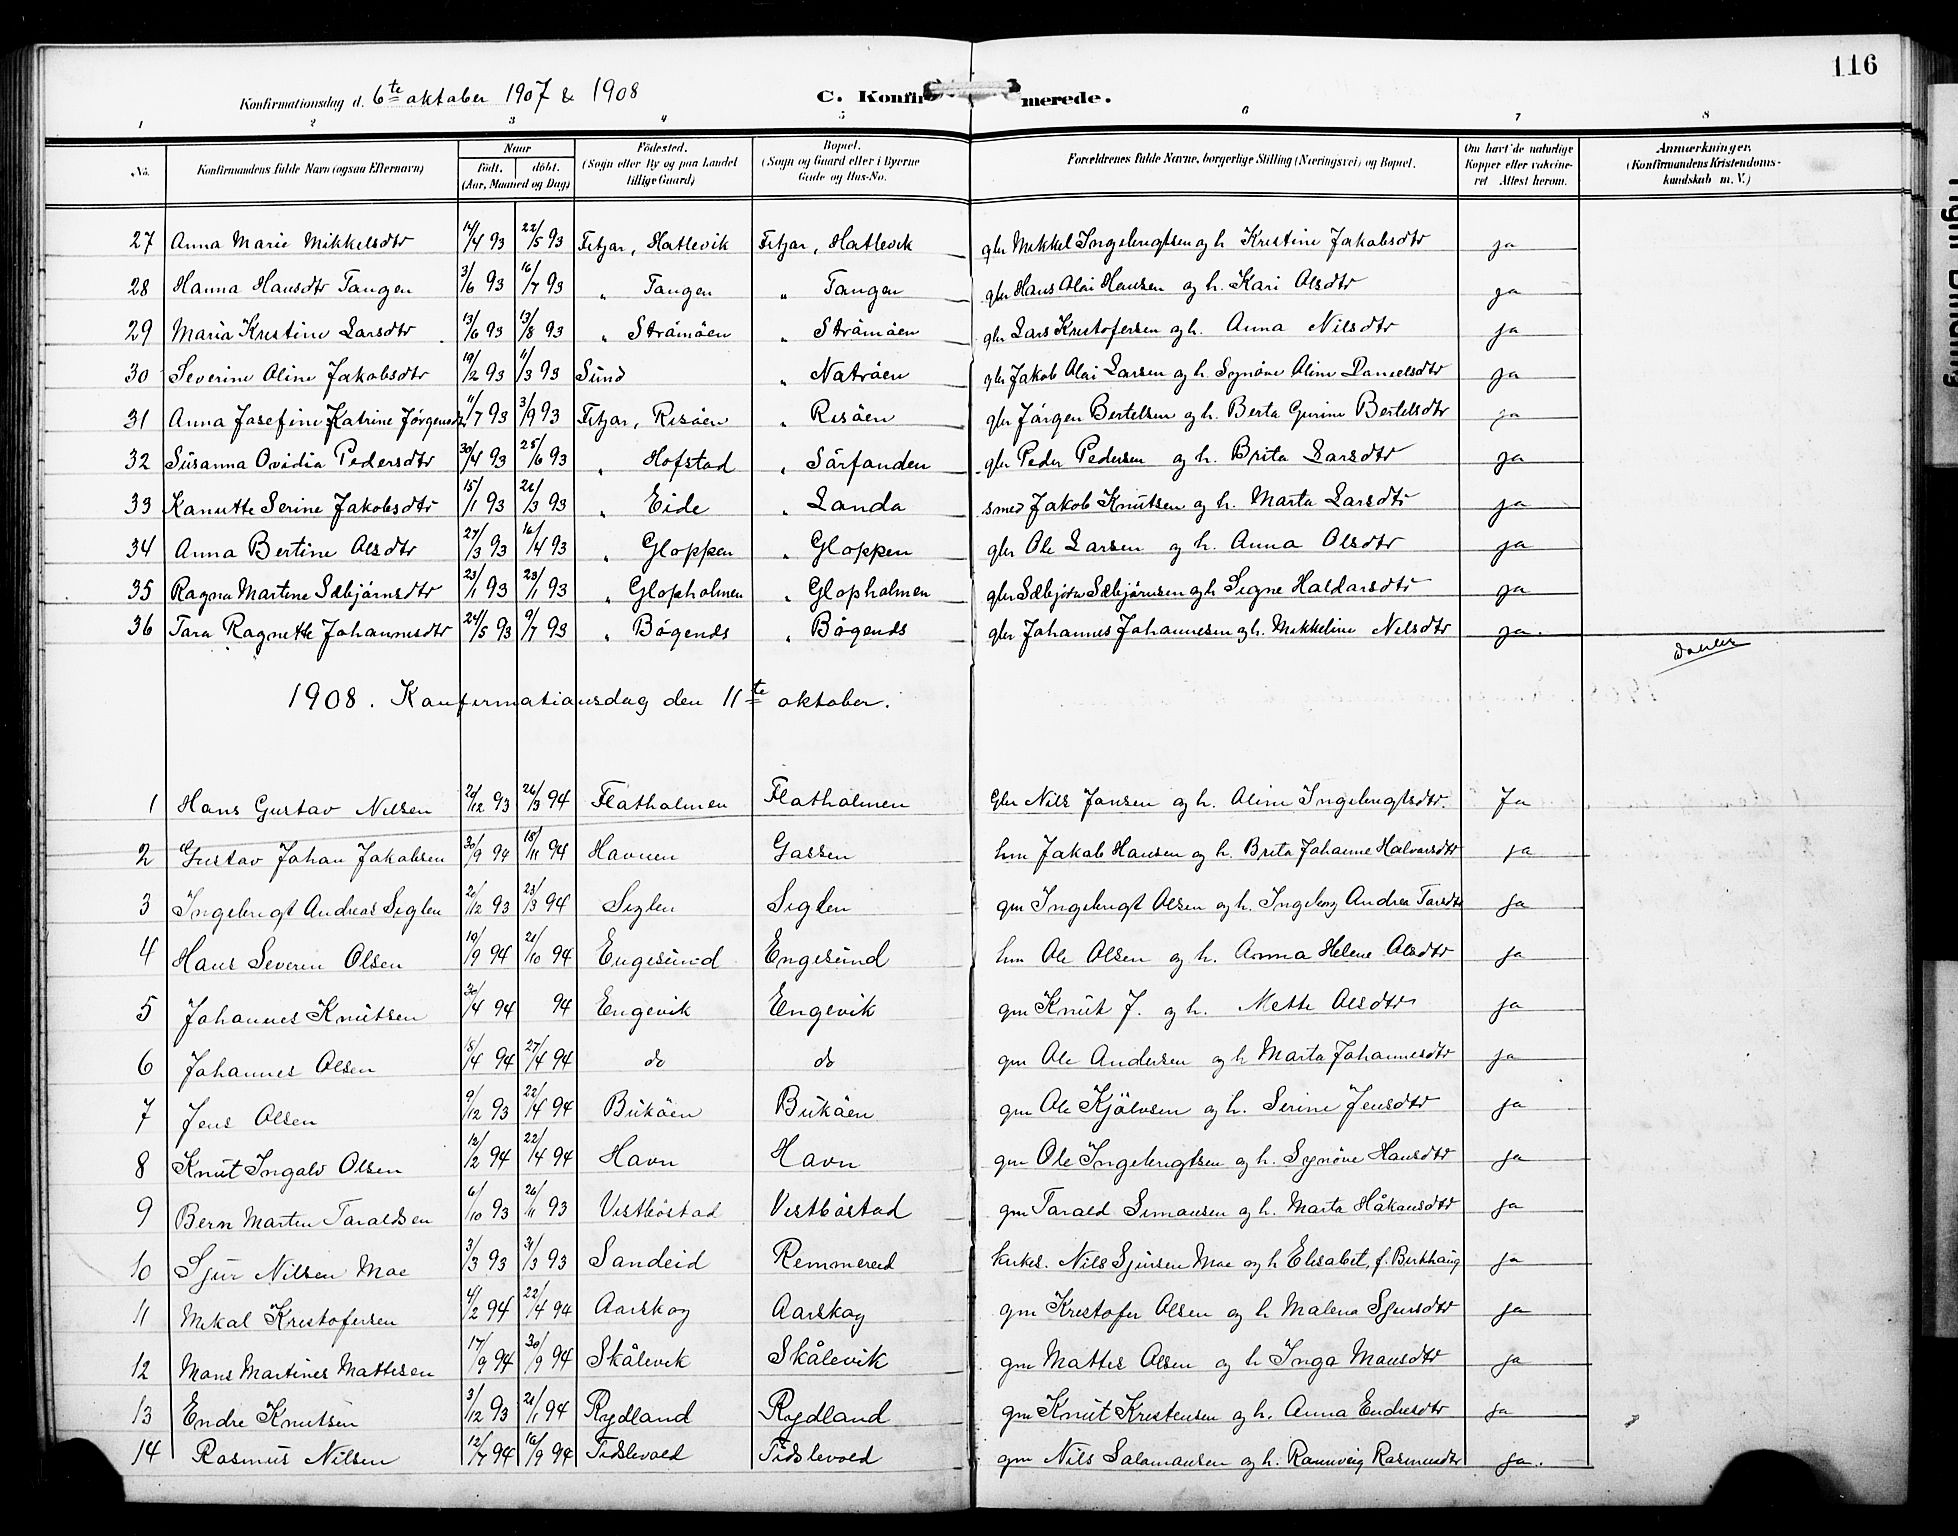 116
Konfirmationsdag d. 6te oktober 1907 & 1908 C. Konfirmerede.
1 2 3 4 5 6 7 8
No. Konfirmandens fulde Navn (ogsaa Efternavn) Naar födt. döbt. (Aar, Maaned og Dag) Födested. (Sogn eller By og paa Landet tillige Gaard) Bopæl. (Sogn og Gaard eller i Byerne Gade og Hus-No. Forældrenes fulde Navne, borgerlige Stilling (Næringsvei) og Bopæl. Om havt de naturlige Kopper eller vaksineret Attest herom. Anmærkninger. (Konfirmandens Kristendomskundskab m. V.)
27 Anna Marie Mikkelsdtr 14/4 93 22/5 93 Fitjar, Hatlevik Fitjar, Hatlevik gbr Mikkel Ingebrigtsen og h. Kristine Jakobsdtr ja
28 Hanna Hansdtr Tangen 3/6 93 16/7 93 " Tangen " Tangen gbr Hans Olai Hansen og h. Kari Olsdtr ja
29 Maria Kristine Larsdtr 13/6 93 13/8 93 " Strömöen " Strömöen gbr Lars Kristofersen og h. Anna Nilsdtr ja
30 Severine Oline Jakobsdtr 19/2 93 11/3 93 Sund " Natröen gbr Jakob Olai Larsen og h. Synöve Oline Danielsdtr ja
31 Anna Josefine Katrine Jörgensdtr 11/7 93 3/9 93 Fitjar, Risöen " Risöen gbr Jörgen Bertelsen og h. Berta Gurine Bertelsdtr ja
32 Susanna Ovidia Pedersdtr 30/4 93 25/6 93 " Hofstad " Sörfonden gbr Peder Pedersen og h. Brita Larsdtr ja
33 Kanutte Serine Jakobsdtr 15/1 93 22/3 93 " Eide " Landa smed Jakob Knutsen og h. Marta Larsdtr ja
34 Anna Bertine Olsdtr 27/3 93 16/4 93 " Gloppen " Gloppen gbr Ole Larsen og h. Anna Olsdtr ja
35 Ragna Martine Sæbjörnsdtr 23/1 93 23/1 93 " Glopholmen " Glopholmen gbr Sæbjörn Sæbjörnsen og h Signe Haldorsdtr ja
36 Tora Ragnette Johannesdtr 24/5 93 9/7 93 " Bögends " Bögends gbr Johannes Johannesen og h. Mikkeline Nilsdtr ja.
1908. Konfirmationsdag den 11te oktober.
1 Hans Gustav Nilsen 20/12 93 26/3 94 Flatholmen Flatholmen Gbr Nils Jonsen og h. Oline Ingebrigtsdtr. Ja
2 Gustav Johan Jakobsen 30/9 94 18/11 94 Havnen Gassen hm Jakob Hansen og h. Brita Johanne Halvorsdtr ja
3 Ingebrigt Andreas Siglen 2/12 93 23/3 94 Siglen Siglen gm Ingebrigt Olsen og h. Ingeborg Andrea Torsdtr ja
4 Hans Severin Olsen 19/9 94 21/10 94 Engesund Engesund hm Ole Olsen og h. Anna Helene Olsdtr ja
5 Johannes Knutsen 30/4 94 94 Engevik Engevik gm Knut J. og h. Mette Olsdtr ja
6 Johannes Olsen 15/4 94 27/4 94 do do gm Ole Andersen og h Marta Johannesdtr ja
7 Jens Olsen 9/12 93 22/4 94 Buköen Buköen gm Ole Kjölvsen og h. Serine Jensdtr ja
8 Knut Ingalv Olsen 12/2 94 22/4 94 Havn Havn gm Ole Ingebrigtsen og h. Synöve Hansdtr ja
9 Bern Martin Taraldsen 6/10 93 26/11 93 Vestböstad Vestböstad gm Tarald Simonsen og h. Marta Håkonsdtr ja
10 Sjur Nilsen Moe 3/3 93 31/3 93 Sandeid Remmereid kirkes. Nils Sjursen Moe og h Elisabet, f. Birkhaug ja
11 Mikal Kristofersen 4/2 94 22/4 94 Aarskog Aarskog gm Kristofer Olsen og h Malena Sjursdtr ja
12 Mons Martines Mattisen 17/9 94 30/9 94 Skålevik Skålevik gm Mattis Olsen og h Inga Monsdtr ja
13 Endre Knutsen 3/12 93 21/1 94 Rydland Rydland gm Knut Kristensen og h. Anna Endresdtr ja
14 Rasmus Nilsen 12/7 94 16/9 94 Tidslevold Tidslevold gm Nils Salamonsen og h. Rannveig Rasmusdtr ja.